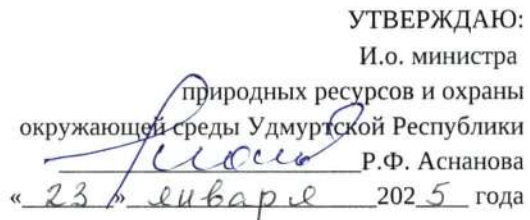 УТВЕРЖДАЮ:
И.о. министра
природных ресурсов и охраны
окружающей среды Удмуртской Республики
Р.Ф. Аснанова
« 23 » января 2025 года